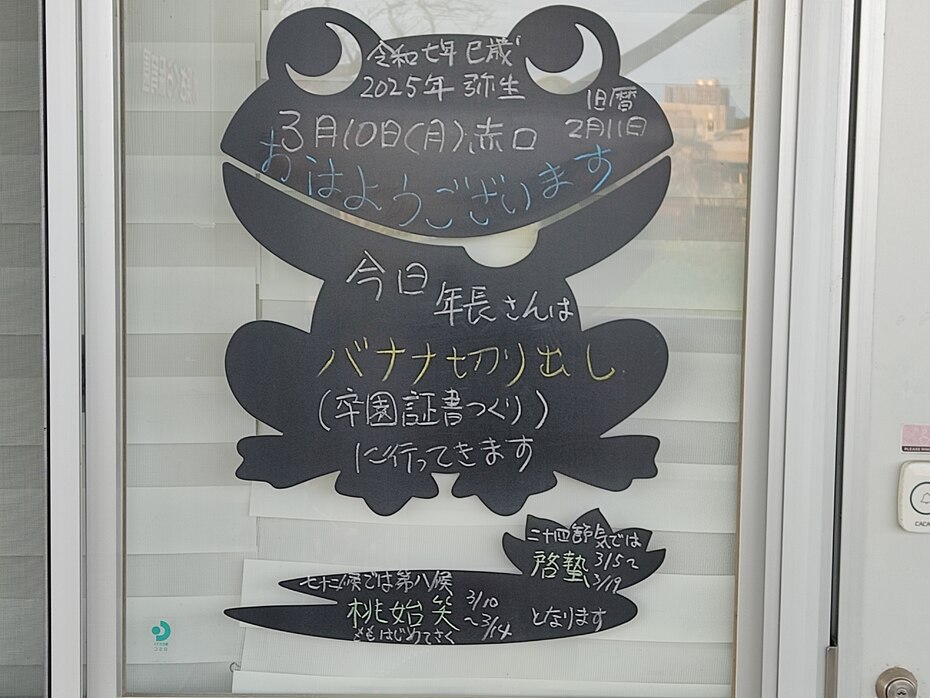 令和七年巳歳
2025年 弥生
旧暦
2月11日
3月10日(月)赤口
おはようございます
今日 年長さんは
バナナ切り出し
(卒園証書つくり)
に行ってきます
二十四節気では
啓蟄 3/5〜3/19
七十二候では第八候
桃始笑 3/10〜3/14
ももはじめてさく
となります